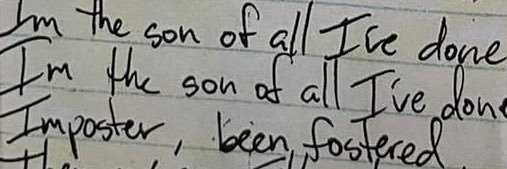 Im the son of all I've done
Im the son of all I've done
Imposter, been, fostered